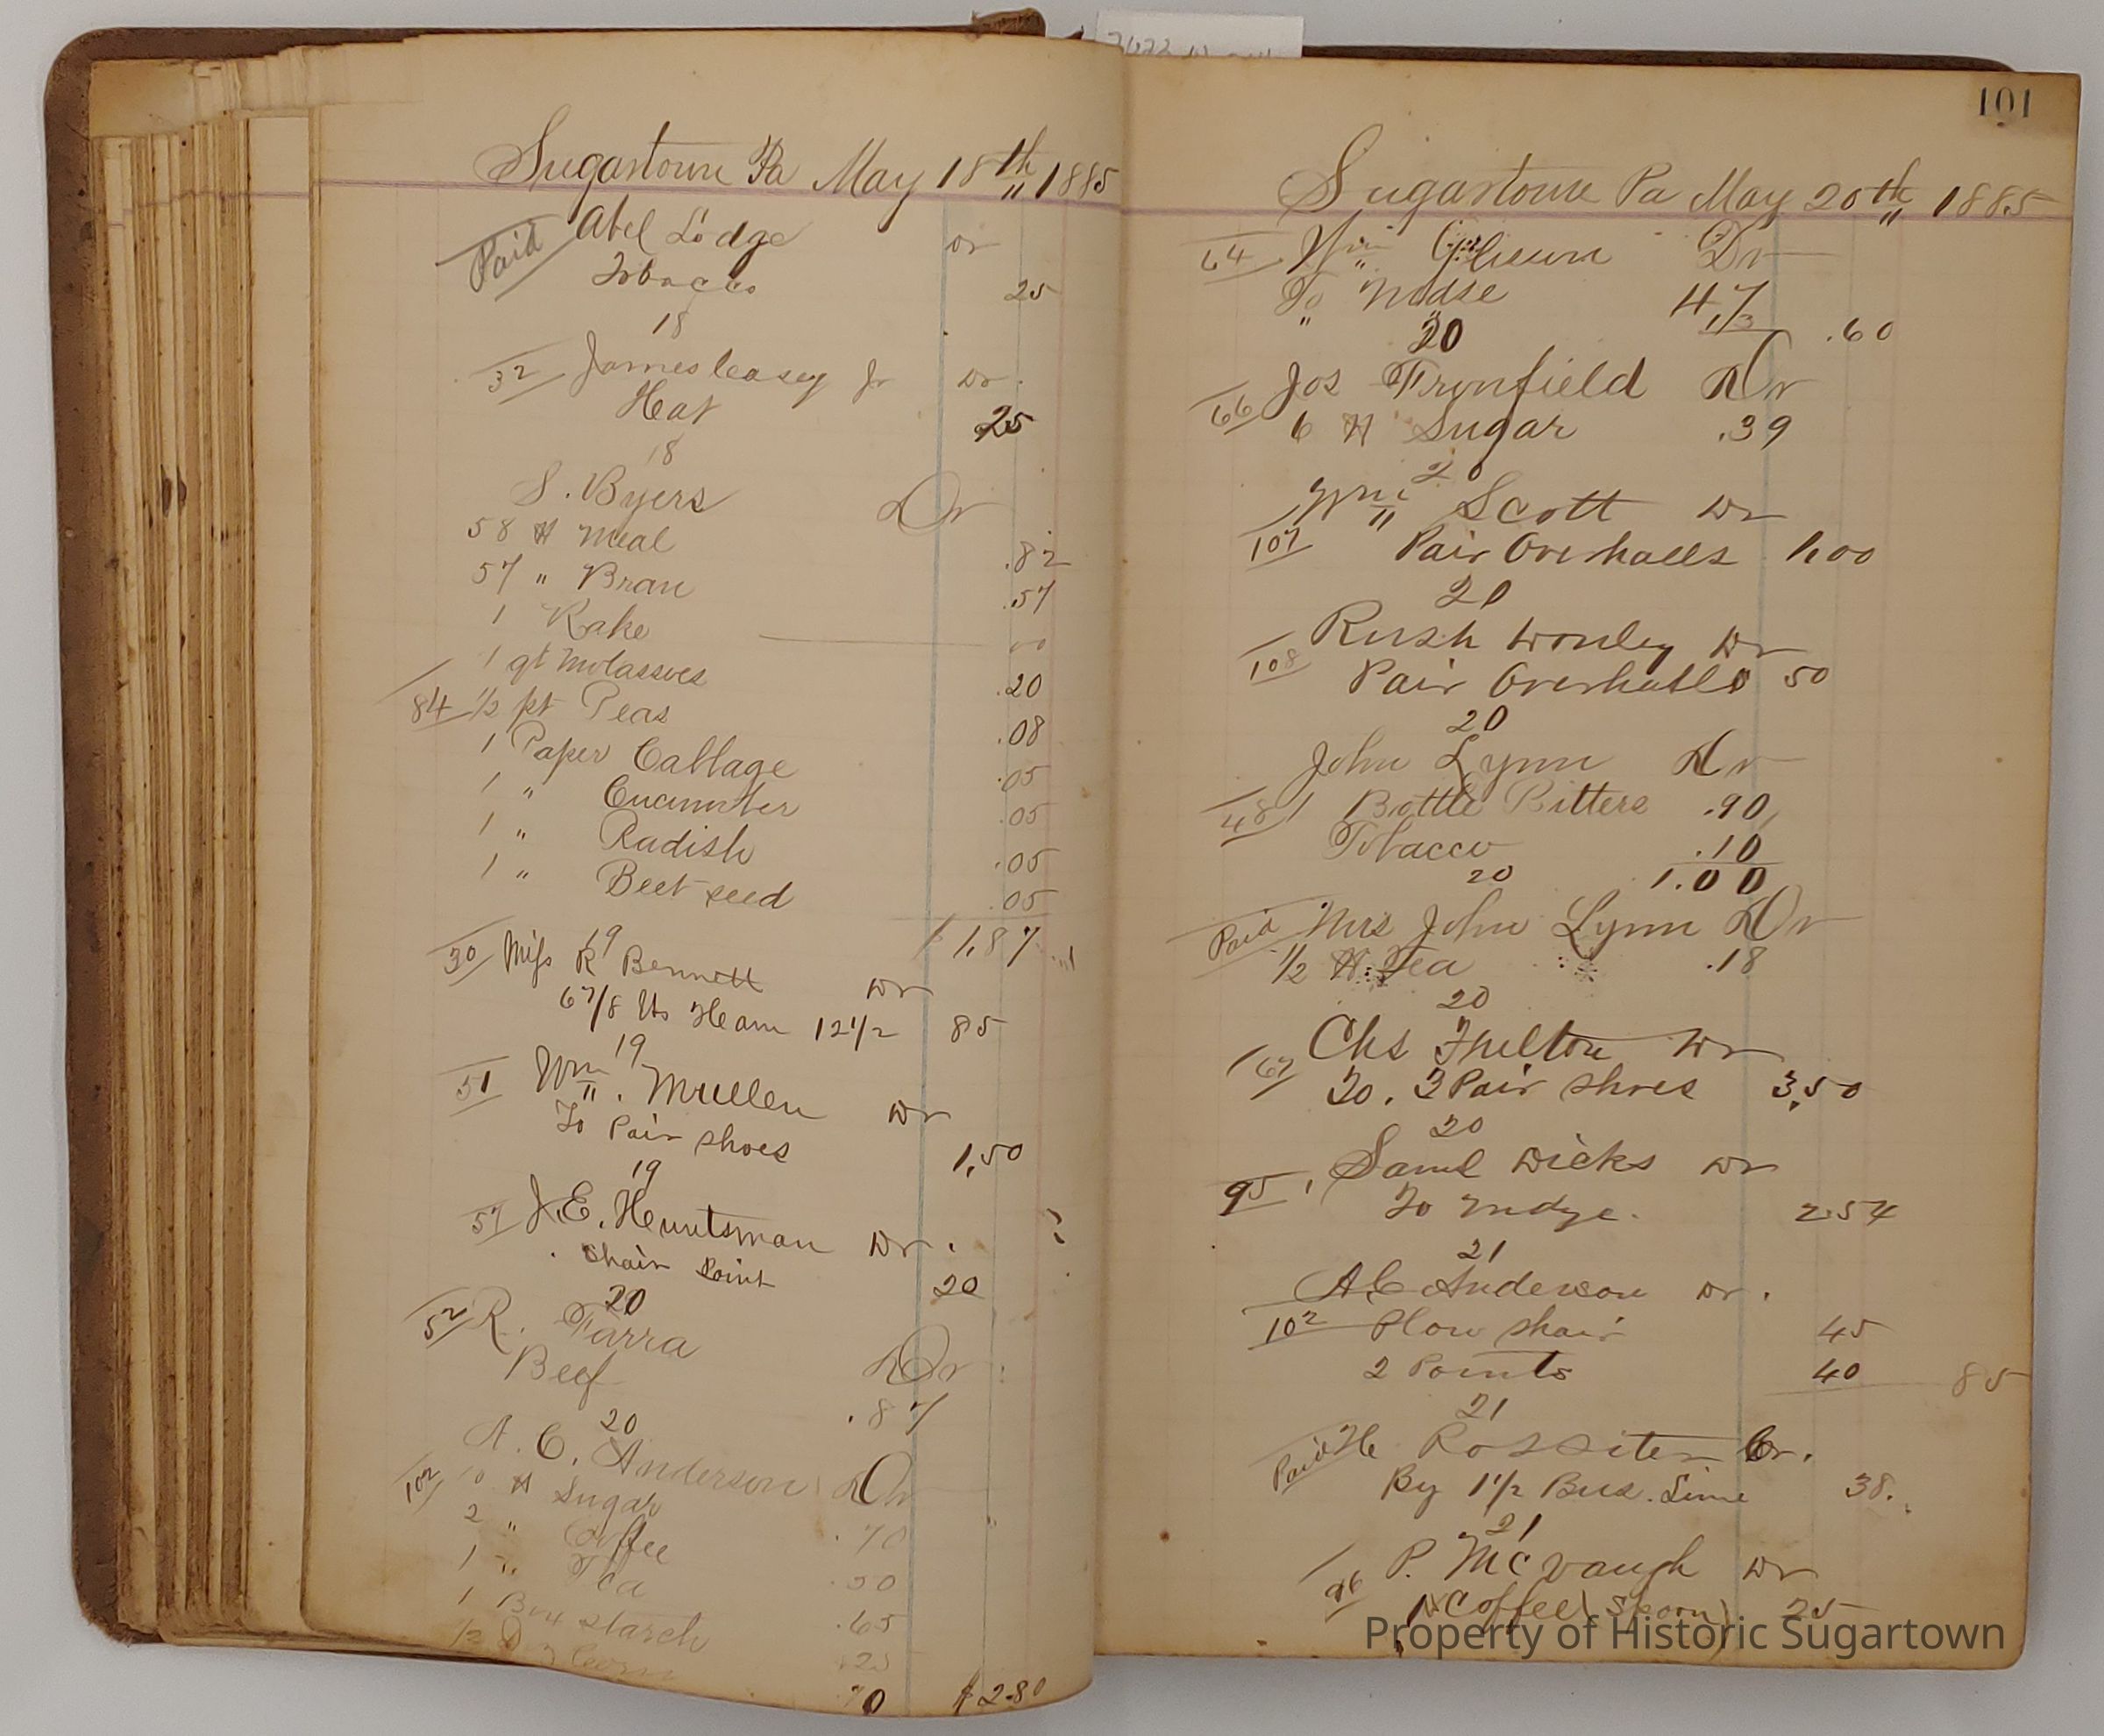 Sugartown Pa May 18th 1885
Paid Abel Lodge Dr
Tobacco 25
18
32 James Casey Jr Dr.
Hat 25
18
S. Byers Dr
58 # Meal .82
57 " Bran .57
1 Rake
1 qt Molasses .20
84 1/2 pt Peas .08
1 Paper Cabbage .05
1 " Cucumber .05
1 " Radish .05
1 " Beet seed .05
$1,87
19
30 Miss R Bennett Dr
6 7/8 lbs Ham 12 1/2 85
19
51 Wm. Mullen Dr
To Pair Shoes 1,50
19
57 J.E. Huntsman Dr.
Shair Point 20
20
52 R. Tarra Dr
Beef .87
20
A. C. Anderson Dr
102 10 # Sugar .70
2 " Coffee .50
1 " Tea .65
1 Box Starch .25
1/2 Doz Corn 70 $2.80
101
Sugartown Pa May 20th 1885
64 Wm Dr
To Mdse 47
13 .60
20
Jos Trunfield Dr
66 6 # Sugar .39
20
Wm Scott Dr
107 Pair Overhalls 1,00
20
Rush Worley Dr
108 Pair Overhalls 50
20
John Lynn Dr
48 1 Bottle Bitters .90
Tobacco .10
20 1.00
Paid Mrs John Lynn Dr
1/2 # Tea .18
20
67 Chs Fulton Dr
To. 2 Pair Shoes 3,50
20
95 Saml Wicks Dr
To Mdze. 2.54
21
A C Anderson Dr.
102 Plow Shair 45
2 Points 40 85
21
Paid H Rossiter Cr.
By 1 1/2 Bus. Lime 38.
21
96 P. McVaugh Dr
1 # Coffee (Spoon) 25
Property of Historic Sugartown